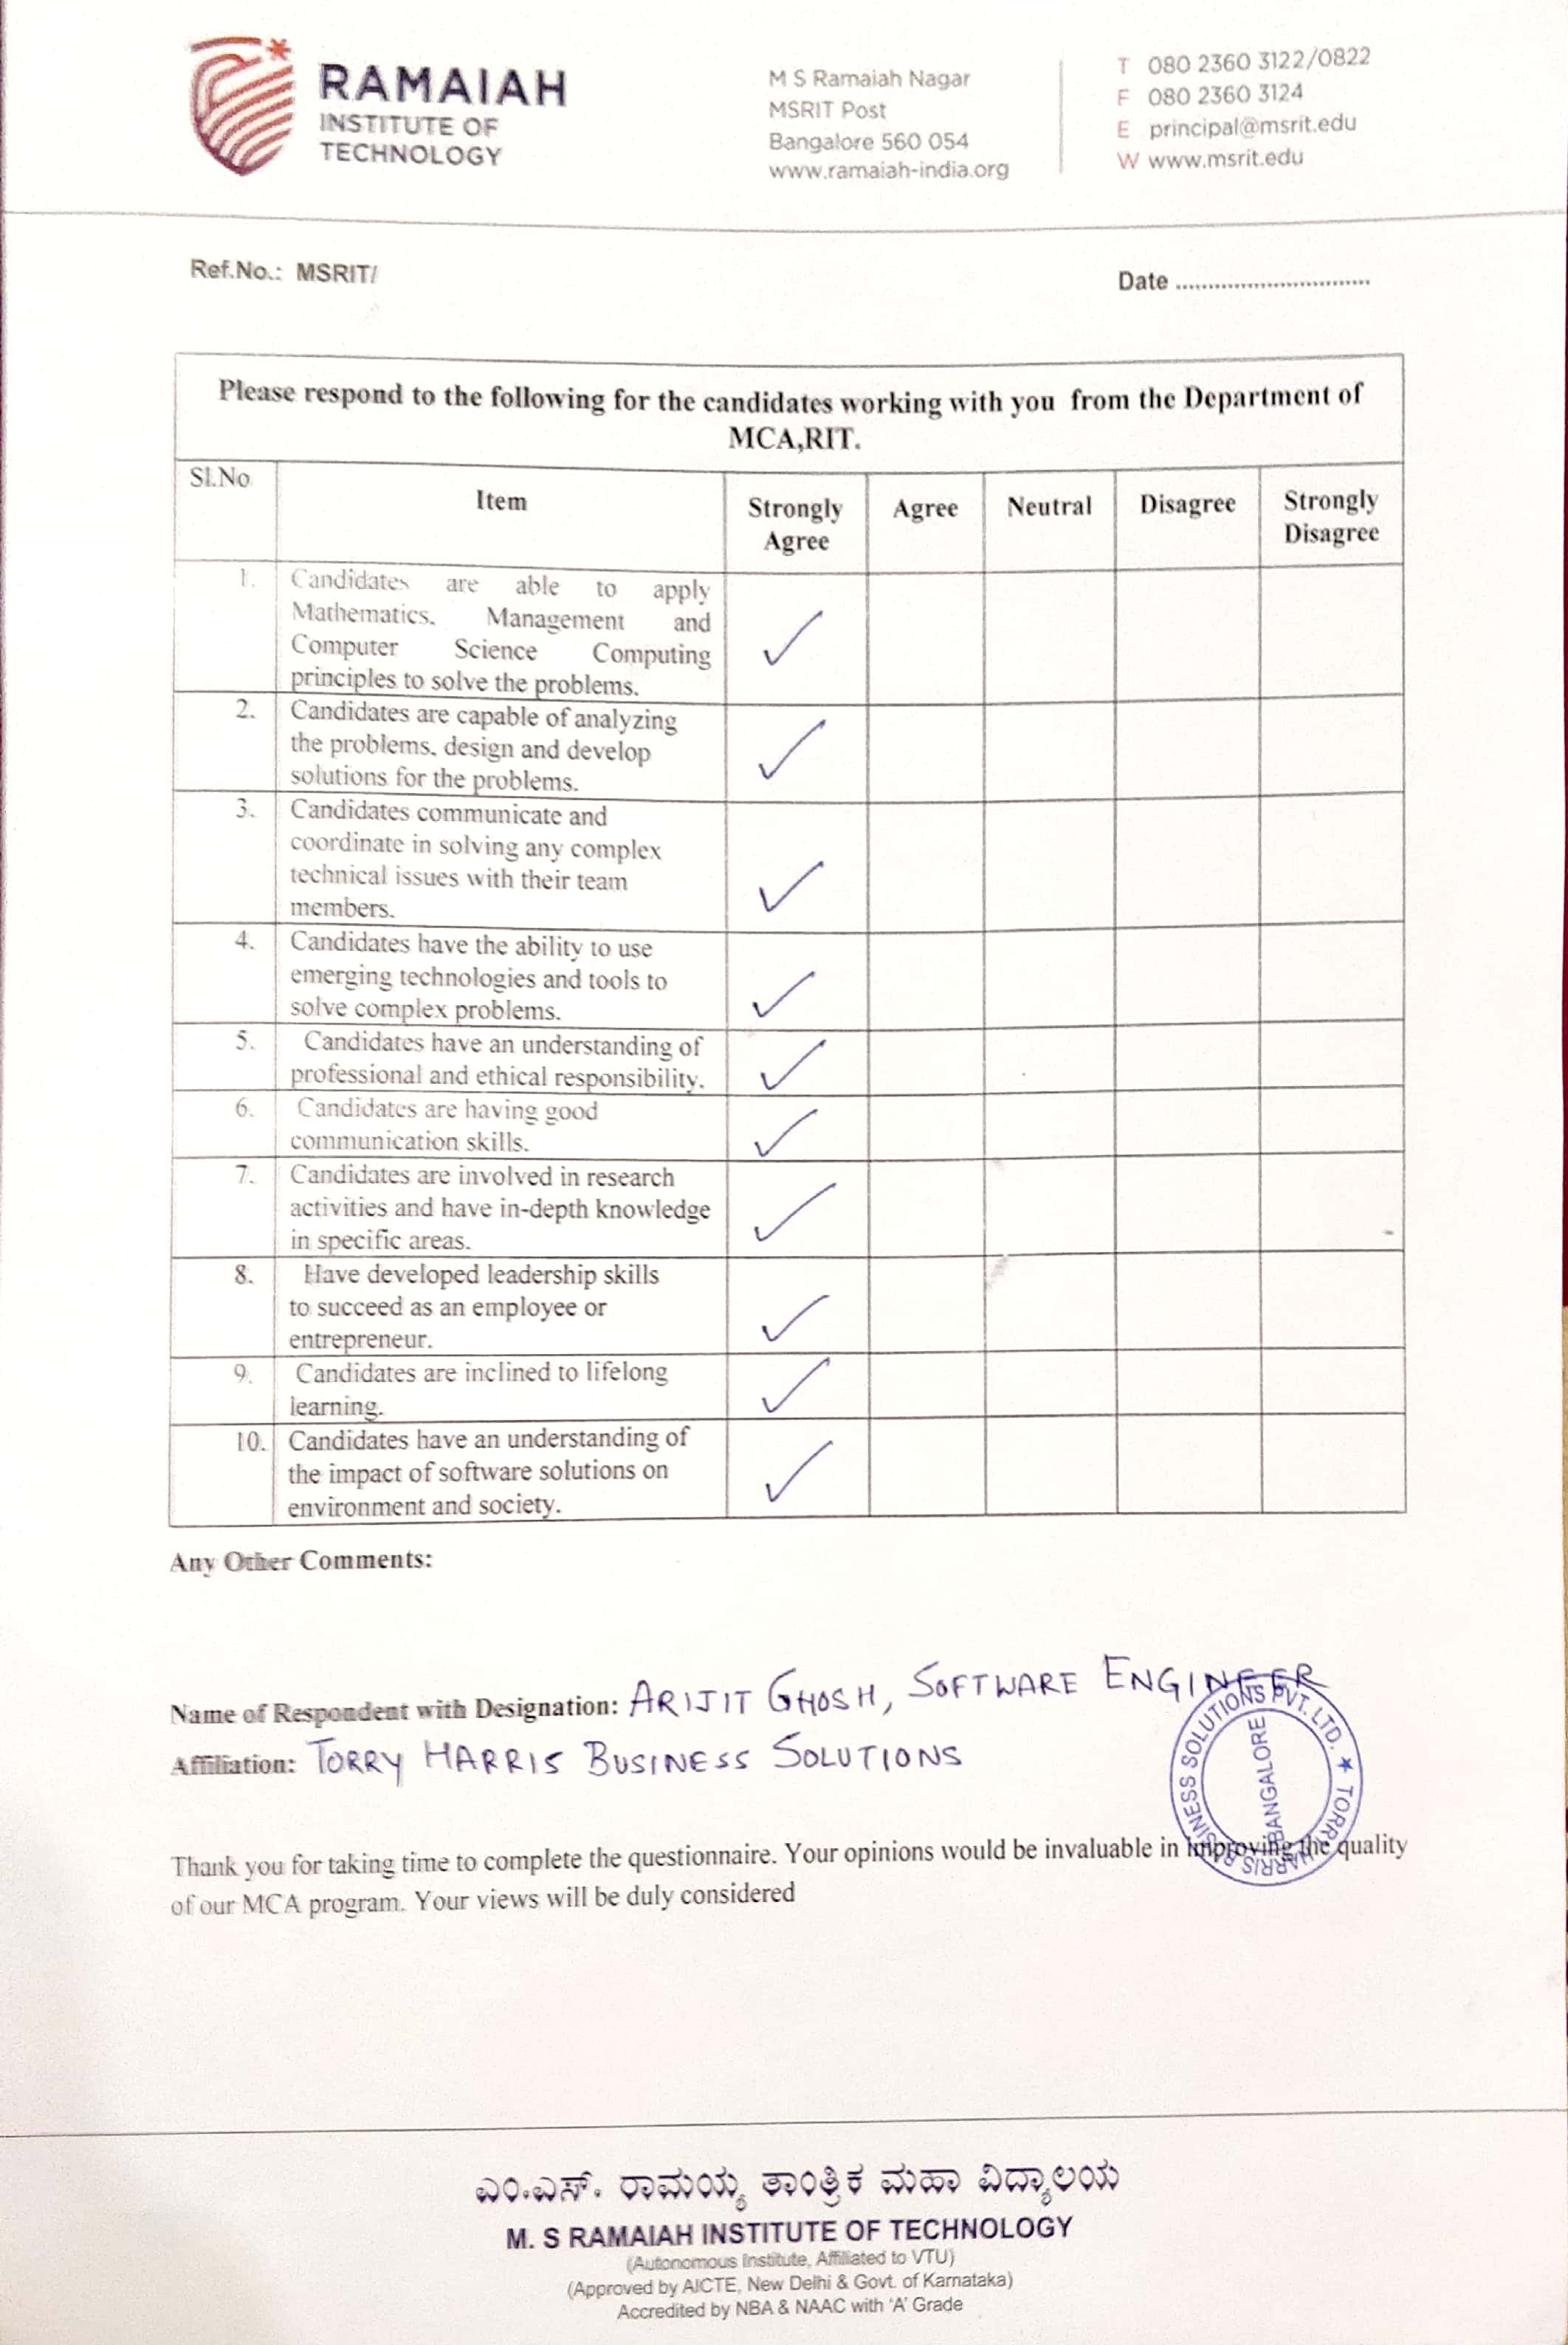 RAMAIAH
INSTITUTE OF
TECHNOLOGY
M S Ramaiah Nagar
MSRIT Post
Bangalore 560 054
www.ramaiah-india.org
T 080 2360 3122/0822
F 080 2360 3124
E principal@msrit.edu
W www.msrit.edu
Ref.No.: MSRIT/
Date ..............................
Please respond to the following for the candidates working with you from the Department of
MCA,RIT.
Sl.No
Item
Strongly
Agree
Agree
Neutral
Disagree
Strongly
Disagree
1. Candidates are able to apply
Mathematics, Management and
Computer Science Computing
principles to solve the problems.
✓
2. Candidates are capable of analyzing
the problems, design and develop
solutions for the problems.
✓
3. Candidates communicate and
coordinate in solving any complex
technical issues with their team
members.
✓
4. Candidates have the ability to use
emerging technologies and tools to
solve complex problems.
✓
5. Candidates have an understanding of
professional and ethical responsibility.
✓
6. Candidates are having good
communication skills.
✓
7. Candidates are involved in research
activities and have in-depth knowledge
in specific areas.
✓
8. Have developed leadership skills
to succeed as an employee or
entrepreneur.
✓
9. Candidates are inclined to lifelong
learning.
✓
10. Candidates have an understanding of
the impact of software solutions on
environment and society.
✓
Any Other Comments:
Name of Respondent with Designation: ARIJIT GHOSH, SOFTWARE ENGINEER
Affiliation: TORRY HARRIS BUSINESS SOLUTIONS
TORRY HARRIS BUSINESS SOLUTIONS PVT. LTD. ★
BANGALORE
Thank you for taking time to complete the questionnaire. Your opinions would be invaluable in improving the quality
of our MCA program. Your views will be duly considered
ಎಂ.ಎಸ್. ರಾಮಯ್ಯ ತಾಂತ್ರಿಕ ಮಹಾ ವಿದ್ಯಾಲಯ
M. S RAMAIAH INSTITUTE OF TECHNOLOGY
(Autonomous Institute, Affiliated to VTU)
(Approved by AICTE, New Delhi & Govt. of Karnataka)
Accredited by NBA & NAAC with 'A' Grade